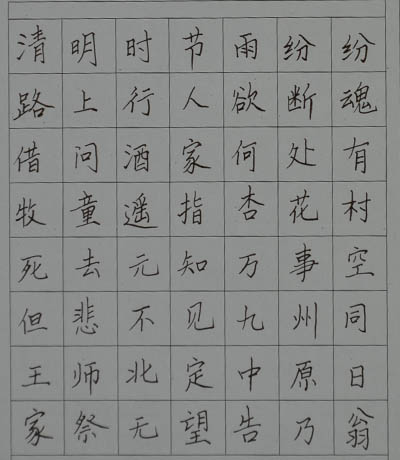 清明时节雨纷纷
路上行人欲断魂
借问酒家何处有
牧童遥指杏花村
死去元知万事空
但悲不见九州同
王师北定中原日
家祭无望告乃翁